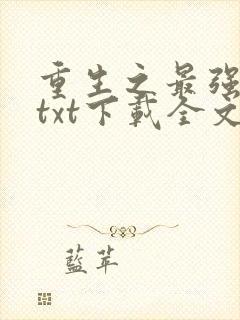 重生之最强
txt下載全文
藍苹